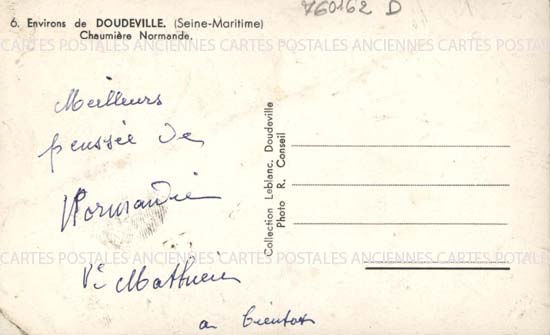 760162 D
6. Environs de DOUDEVILLE. (Seine-Maritime)
Chaumière Normande.
CARTES POSTALES ANCIENNES CARTES POSTALES ANCIENNES CARTES POSTALES ANCIENNES
Meilleurs
pensée de
Normandie
a bientot
Collection Leblanc. Doudeville
Photo R. Conseil
CARTES POSTALES ANCIENNES CARTES POSTALES ANCIENNES CARTES POSTALES ANCIENNES